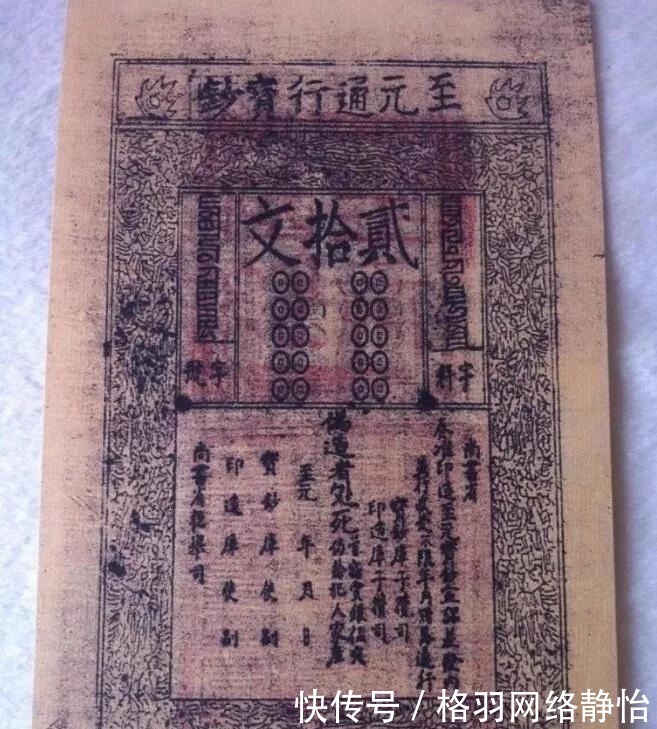 至元通行寶鈔
貳拾文
字料
字號
尚書省
奏准印造至元寶鈔宣課差發內
並行收受不限年月諸路通行
寶鈔庫子攢司
印造庫子攢司
偽造者處死
仍給犯人家產
至元 年 月 日
寶鈔庫使副
印造庫使副
尚書省提舉司
快传号 / 格羽网络静怡